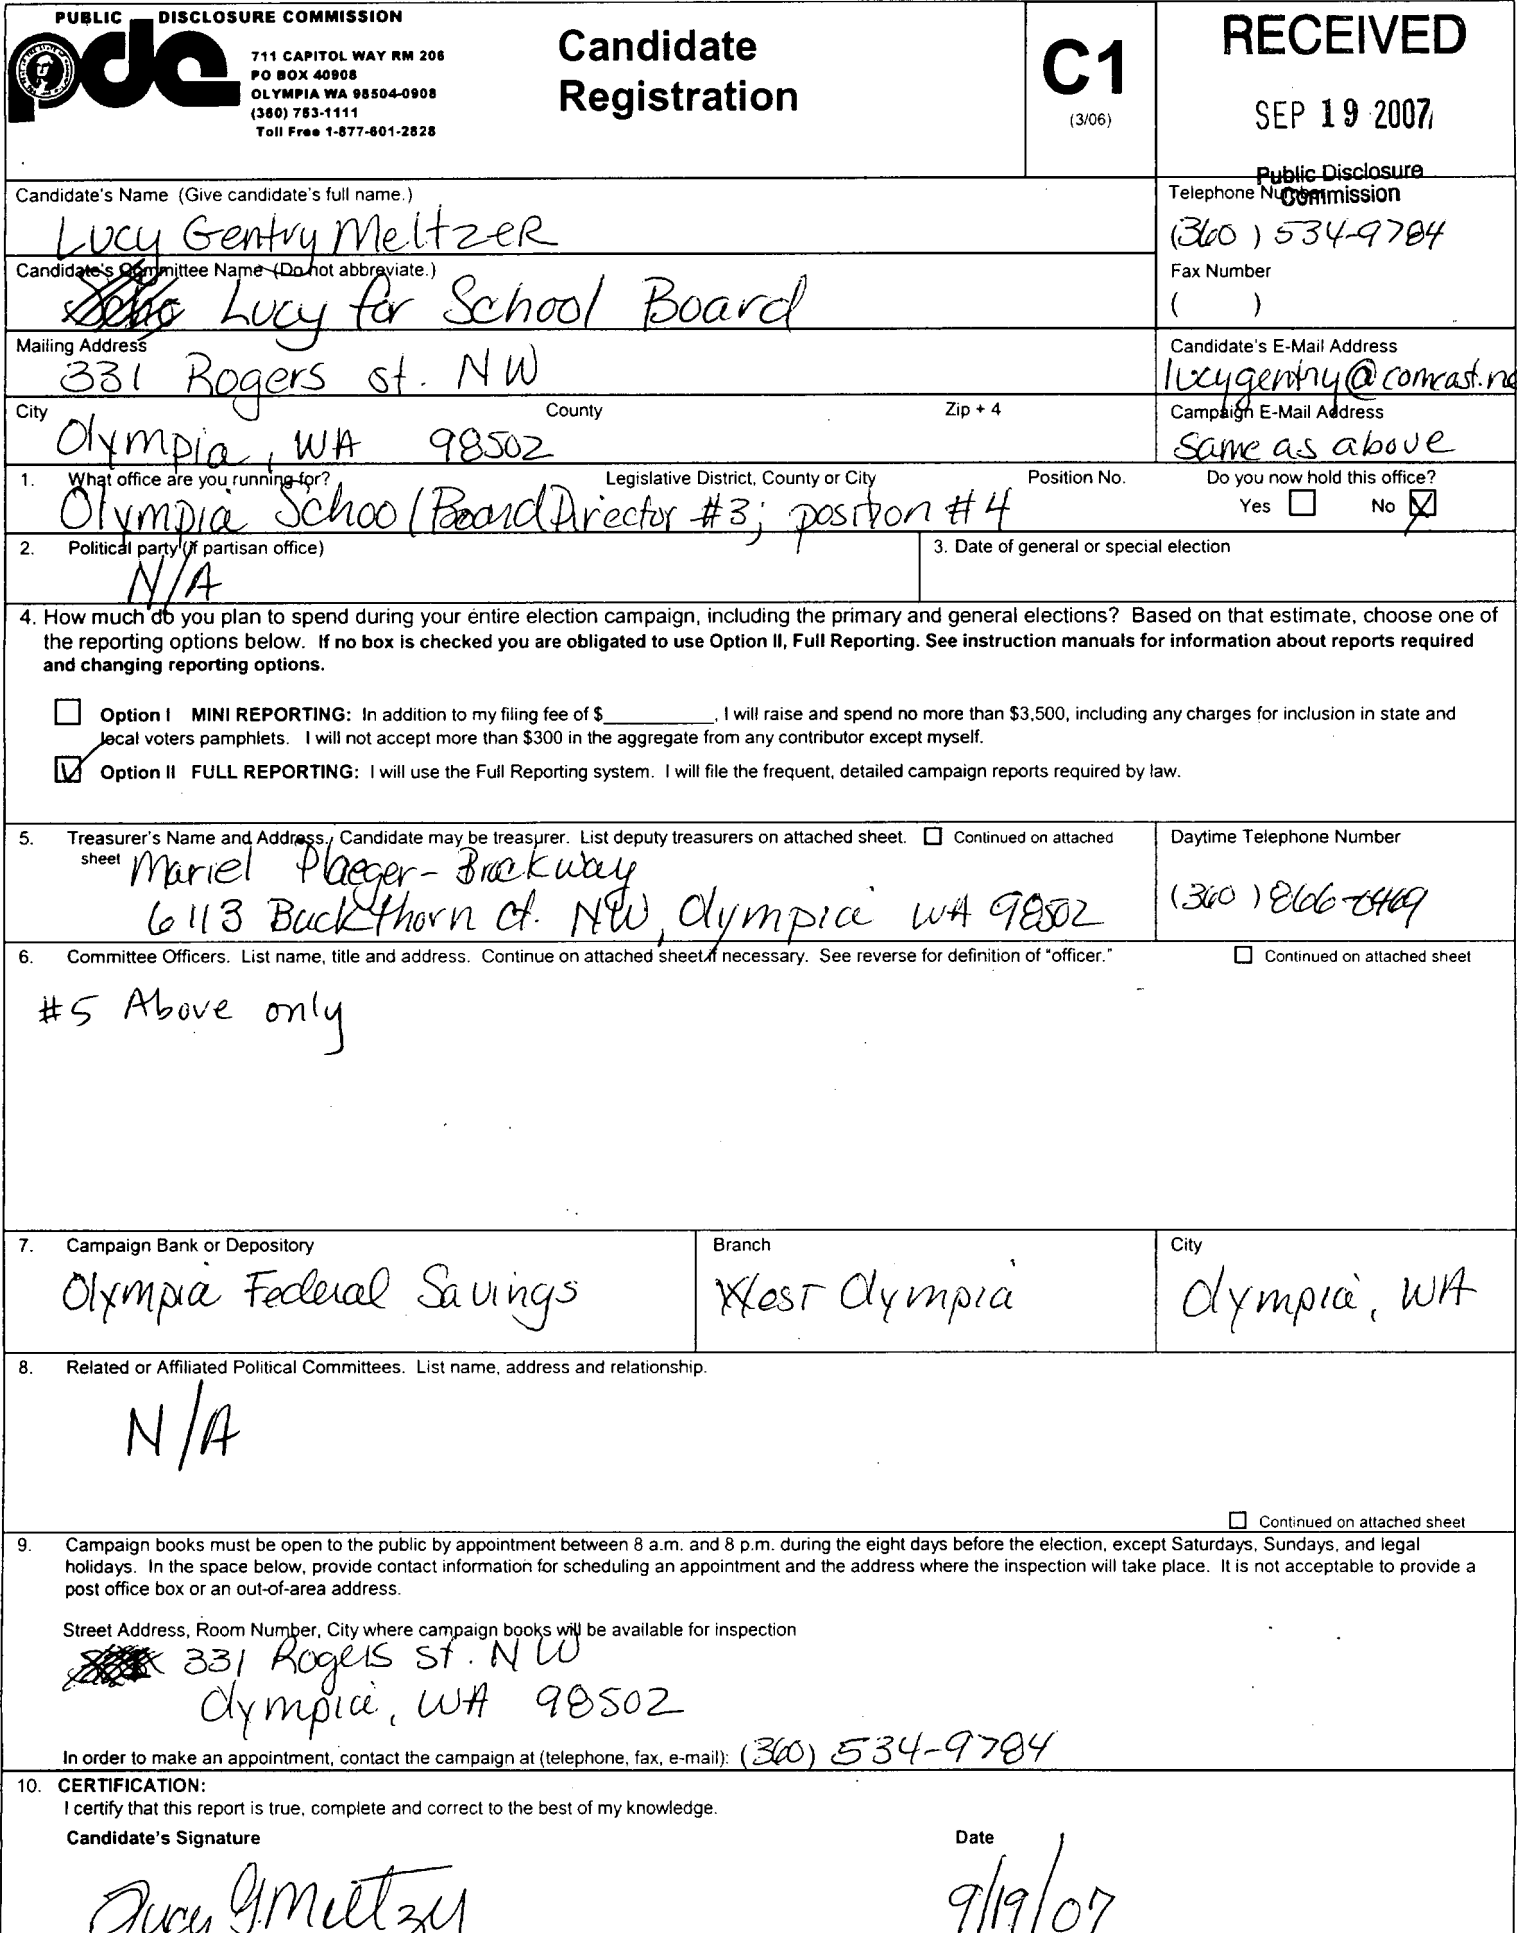 PUBLIC DISCLOSURE COMMISSION
pdc
711 CAPITOL WAY RM 206
PO BOX 40908
OLYMPIA WA 98504-0908
(360) 753-1111
Toll Free 1-877-601-2828
Candidate
Registration
C1
(3/06)
RECEIVED
SEP 19 2007
Public Disclosure
Commission
Candidate's Name (Give candidate's full name.)
Lucy Gentry Meltzer
Telephone Number
(360) 534-9784
Candidate's Committee Name (Do not abbreviate.)
Lucy for School Board
Fax Number
( )
Mailing Address
331 Rogers st. NW
Candidate's E-Mail Address
lucygentry@comcast.ne
City County Zip + 4
Olympia, WA 98502
Campaign E-Mail Address
same as above
1. What office are you running for? Legislative District, County or City Position No. Do you now hold this office?
Olympia School Board Director #3; position #4
Yes No
2. Political party (if partisan office)
N/A
3. Date of general or special election
4. How much do you plan to spend during your entire election campaign, including the primary and general elections? Based on that estimate, choose one of
the reporting options below. If no box is checked you are obligated to use Option II, Full Reporting. See instruction manuals for information about reports required
and changing reporting options.
Option I MINI REPORTING: In addition to my filing fee of $__________, I will raise and spend no more than $3,500, including any charges for inclusion in state and
local voters pamphlets. I will not accept more than $300 in the aggregate from any contributor except myself.
Option II FULL REPORTING: I will use the Full Reporting system. I will file the frequent, detailed campaign reports required by law.
5. Treasurer's Name and Address. Candidate may be treasurer. List deputy treasurers on attached sheet. Continued on attached
sheet
Mariel Plaeger-Brockway
6113 Buckthorn Ct. NW, Olympia WA 98502
Daytime Telephone Number
(360) 866-
6. Committee Officers. List name, title and address. Continue on attached sheet if necessary. See reverse for definition of "officer." Continued on attached sheet
#5 Above only
7. Campaign Bank or Depository
Olympia Federal Savings
Branch
West Olympia
City
Olympia, WA
8. Related or Affiliated Political Committees. List name, address and relationship.
N/A
Continued on attached sheet
9. Campaign books must be open to the public by appointment between 8 a.m. and 8 p.m. during the eight days before the election, except Saturdays, Sundays, and legal
holidays. In the space below, provide contact information for scheduling an appointment and the address where the inspection will take place. It is not acceptable to provide a
post office box or an out-of-area address.
Street Address, Room Number, City where campaign books will be available for inspection
331 Rogers St. NW
Olympia, WA 98502
In order to make an appointment, contact the campaign at (telephone, fax, e-mail): (360) 534-9784
10. CERTIFICATION:
I certify that this report is true, complete and correct to the best of my knowledge.
Candidate's Signature
Lucy G. Meltzer
Date
9/19/07